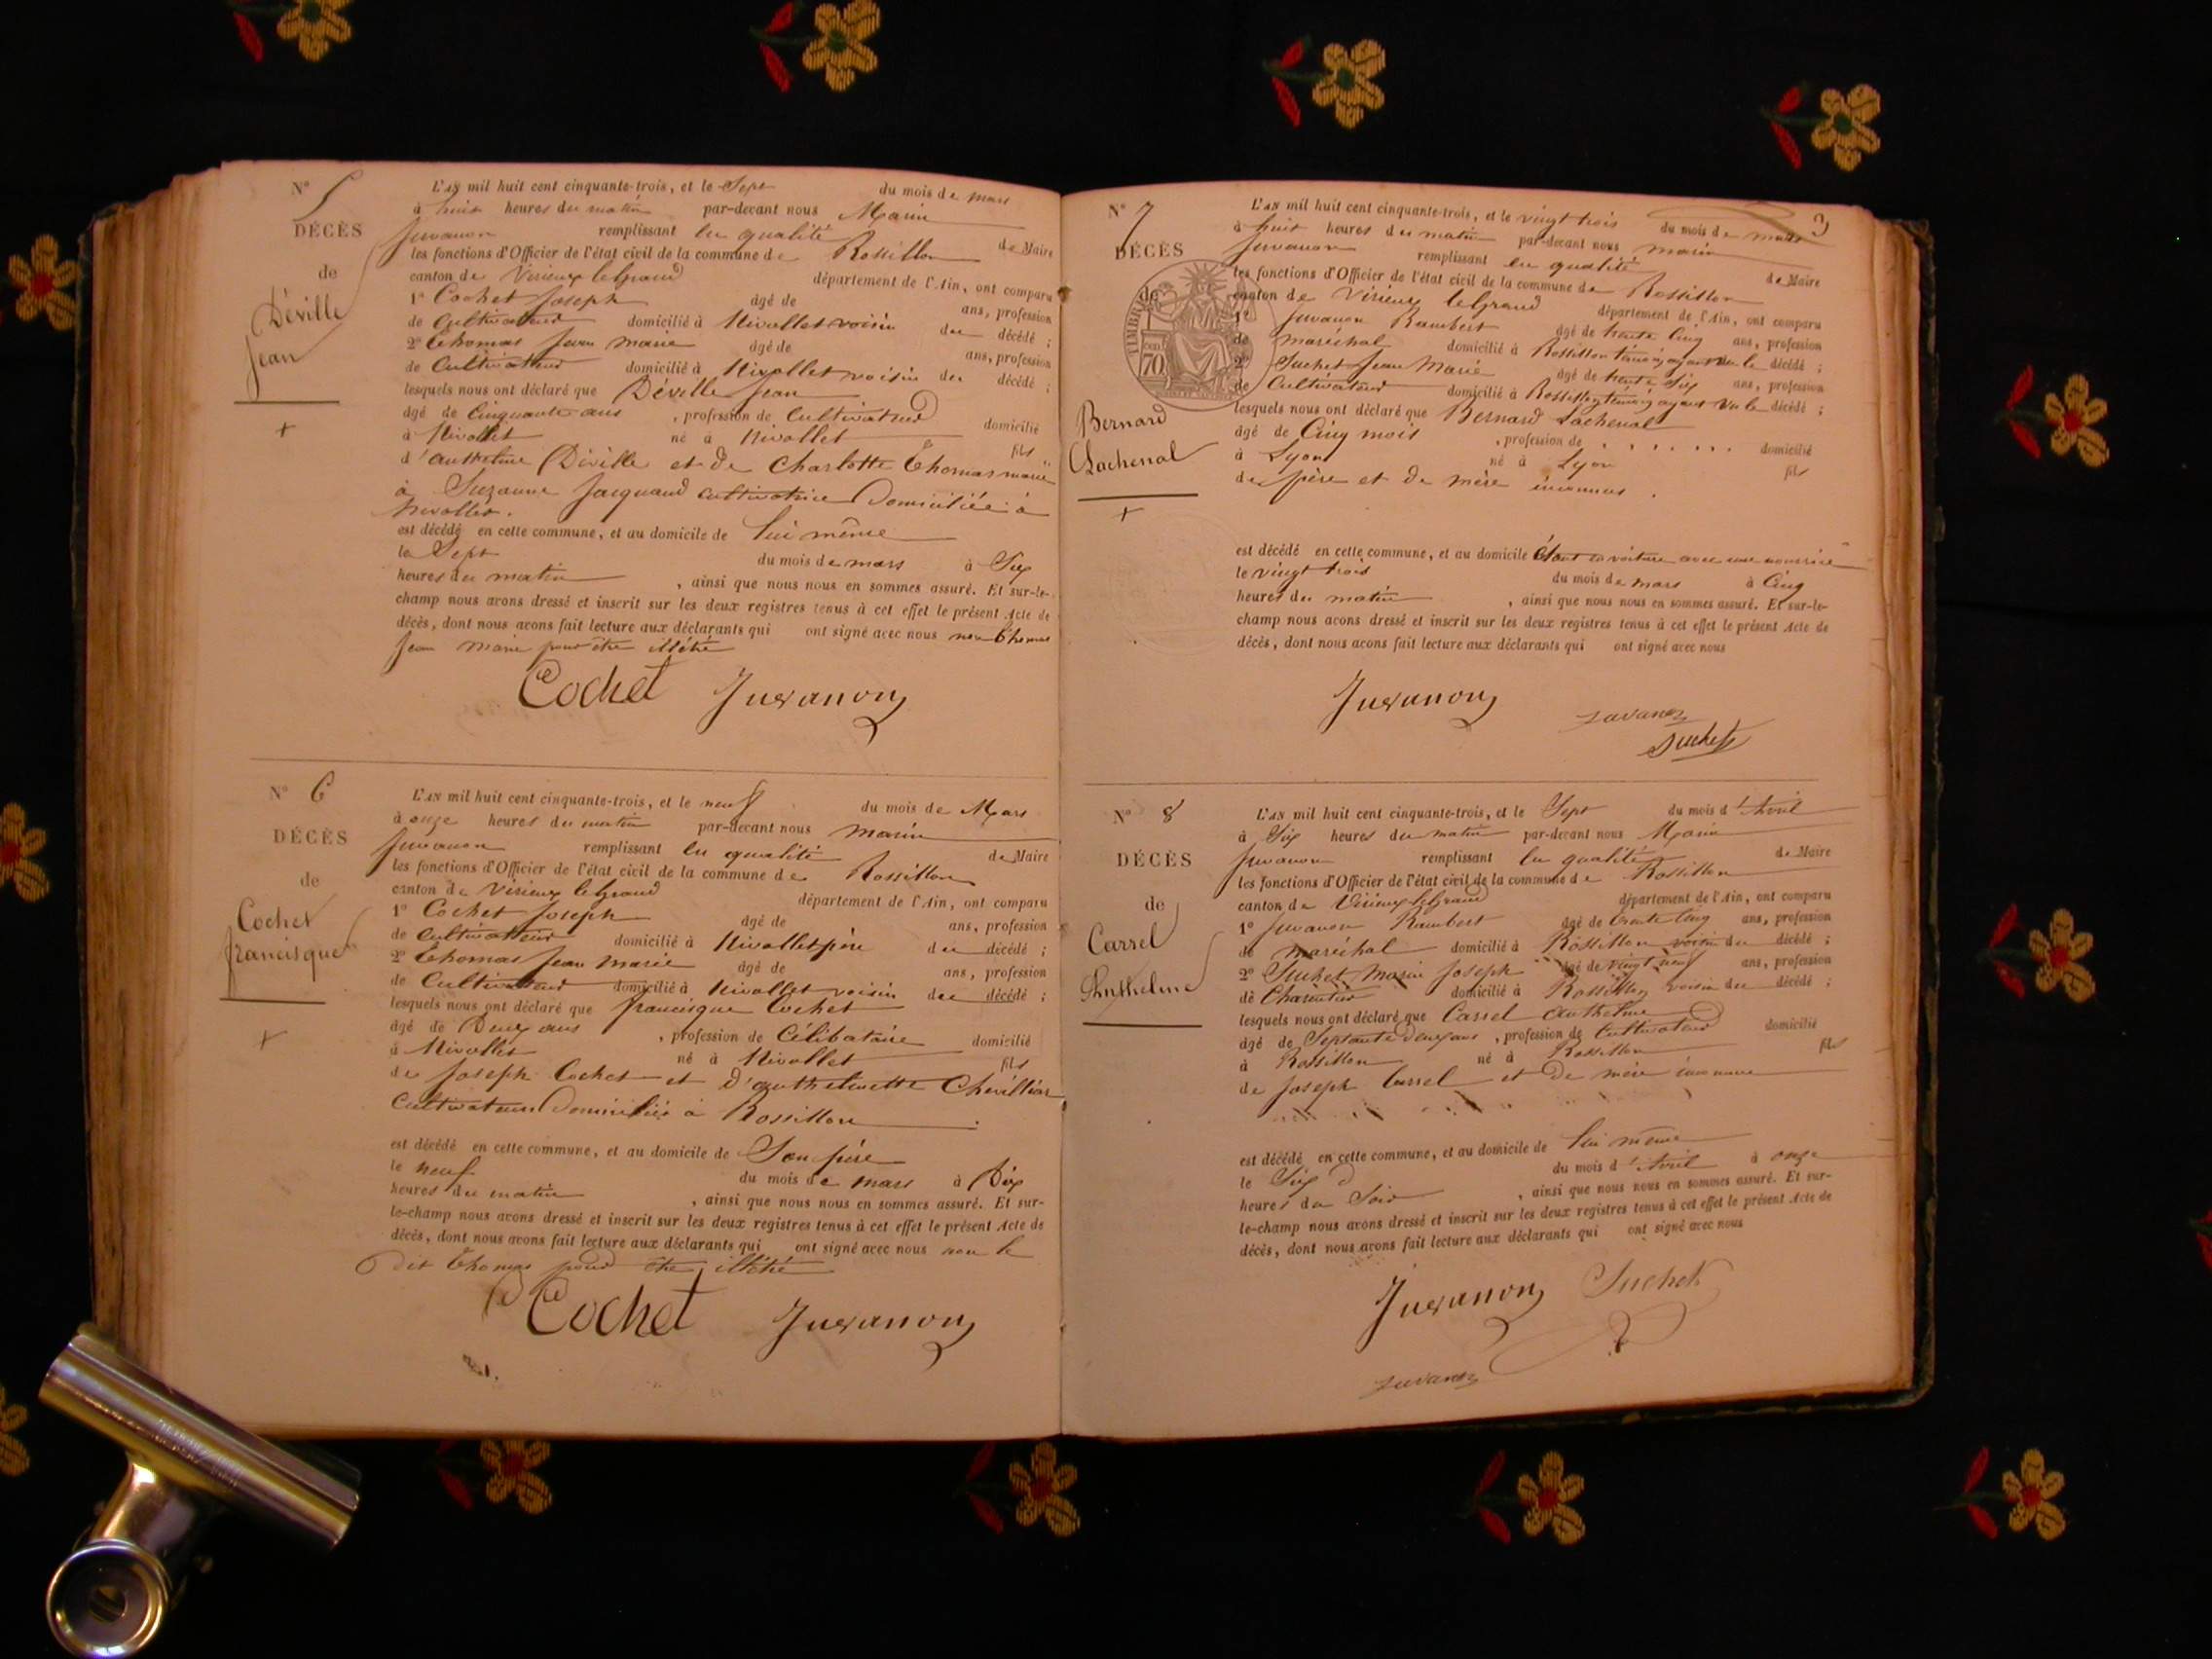 N° 5
DÉCÈS
de
Déville
Jean
L'AN mil huit cent cinquante-trois, et le Sept du mois de mars
à huit heures du matin par-devant nous Marin
Juvanon remplissant en qualité de Maire
les fonctions d'Officier de l'état civil de la commune de Rossillon
canton de Virieux legrand département de l'Ain, ont comparu
1° Cochet Joseph âgé de ans, profession
de Cultivateur domicilié à Nivollet voisin du décédé ;
2° Thomas Jean marie âgé de ans, profession
de Cultivateur domicilié à Nivollet voisin du décédé ;
lesquels nous ont déclaré que Déville Jean
âgé de Cinquante ans , profession de Cultivateur domicilié
à Nivollet né à Nivollet fils
d'authelme Déville et de Charlotte Thomas marié
à Suzanne Jacquand cultivatrice Domiciliée à
Nivollet.
est décédé en cette commune, et au domicile de lui même
le Sept du mois de mars à Six
heures du matin , ainsi que nous nous en sommes assuré. Et sur-le-
champ nous avons dressé et inscrit sur les deux registres tenus à cet effet le présent Acte de
décès, dont nous avons fait lecture aux déclarants qui ont signé avec nous non Thomas
Jean marie pour être illétré
Cochet Juvanon
N° 6
DÉCÈS
de
Cochet
francisque
L'AN mil huit cent cinquante-trois, et le neuf du mois de Mars
à onze heures du matin par-devant nous marin
Juvanon remplissant en qualité de Maire
les fonctions d'Officier de l'état civil de la commune de Rossillon
canton de Virieux legrand département de l'Ain, ont comparu
1° Cochet Joseph âgé de ans, profession
de Cultivateur domicilié à Nivollet père du décédé ;
2° Thomas Jean marie âgé de ans, profession
de Cultivateur domicilié à Nivollet voisin du décédé ;
lesquels nous ont déclaré que francisque Cochet
âgé de Deux ans , profession de Célibataire domicilié
à Nivollet né à Nivollet fils
de Joseph Cochet et D'authelmette Chevillier
Cultivateurs Domiciliés à Rossillon
est décédé en cette commune, et au domicile de Son père
le neuf du mois de mars à Dix
heures du matin , ainsi que nous nous en sommes assuré. Et sur-
le-champ nous avons dressé et inscrit sur les deux registres tenus à cet effet le présent Acte de
décès, dont nous avons fait lecture aux déclarants qui ont signé avec nous non le
Dit Thomas pour être illétré
Cochet Juvanon
3
N° 7
DÉCÈS
de
TIMBRE
70
Bernard
Lachenal
L'AN mil huit cent cinquante-trois, et le vingt trois du mois de mars
à huit heures du matin par-devant nous marin
Juvanon remplissant en qualité de Maire
les fonctions d'Officier de l'état civil de la commune de Rossillon
canton de Virieux legrand département de l'Ain, ont comparu
1° Juvanon Rambert âgé de trente Cinq ans, profession
de maréchal domicilié à Rossillon témoin ayant vu le décédé ;
2° Suchet Jean Marie âgé de trente Six ans, profession
de Cultivateur domicilié à Rossillon témoin ayant vu le décédé ;
lesquels nous ont déclaré que Bernard Lachenal
âgé de Cinq mois , profession de . . . . . . domicilié
à Lyon né à Lyon fils
de père et de mère inconnus .
est décédé en cette commune, et au domicile étant en voiture avec une nourrice
le vingt trois du mois de mars à Cinq
heures du matin , ainsi que nous nous en sommes assuré. Et sur-le-
champ nous avons dressé et inscrit sur les deux registres tenus à cet effet le présent Acte de
décès, dont nous avons fait lecture aux déclarants qui ont signé avec nous
Juvanon Juvanon
Suchet
N° 8
DÉCÈS
de
Carrel
Anthelme
L'AN mil huit cent cinquante-trois, et le Sept du mois d'Avril
à Six heures du matin par-devant nous Marin
Juvanon remplissant en qualité de Maire
les fonctions d'Officier de l'état civil de la commune de Rossillon
canton de Virieux-legrand département de l'Ain, ont comparu
1° Juvanon Rambert âgé de trente Cinq ans, profession
de maréchal domicilié à Rossillon voisin du décédé ;
2° Suchet Marin Joseph âgé de vingt neuf ans, profession
de Charpentier domicilié à Rossillon voisin du décédé ;
lesquels nous ont déclaré que Carrel authelme
âgé de Septante Deux ans , profession de Cultivateur domicilié
à Rossillon né à Rossillon fils
de Joseph Carrel et de mère inconnue
est décédé en cette commune, et au domicile de lui même
le Six du mois d'Avril à onze
heures du Soir , ainsi que nous nous en sommes assuré. Et sur-
le-champ nous avons dressé et inscrit sur les deux registres tenus à cet effet le présent Acte de
décès, dont nous avons fait lecture aux déclarants qui ont signé avec nous
Juvanon Suchet
Juvanon